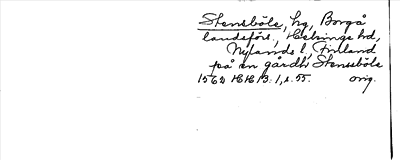 Stensböle, hg, Borgå
landsförs., Helsinge hd,
Nylands l, Finland
på en gårdh Stenssböle
1562 HH 13:1, s. 55. orig.